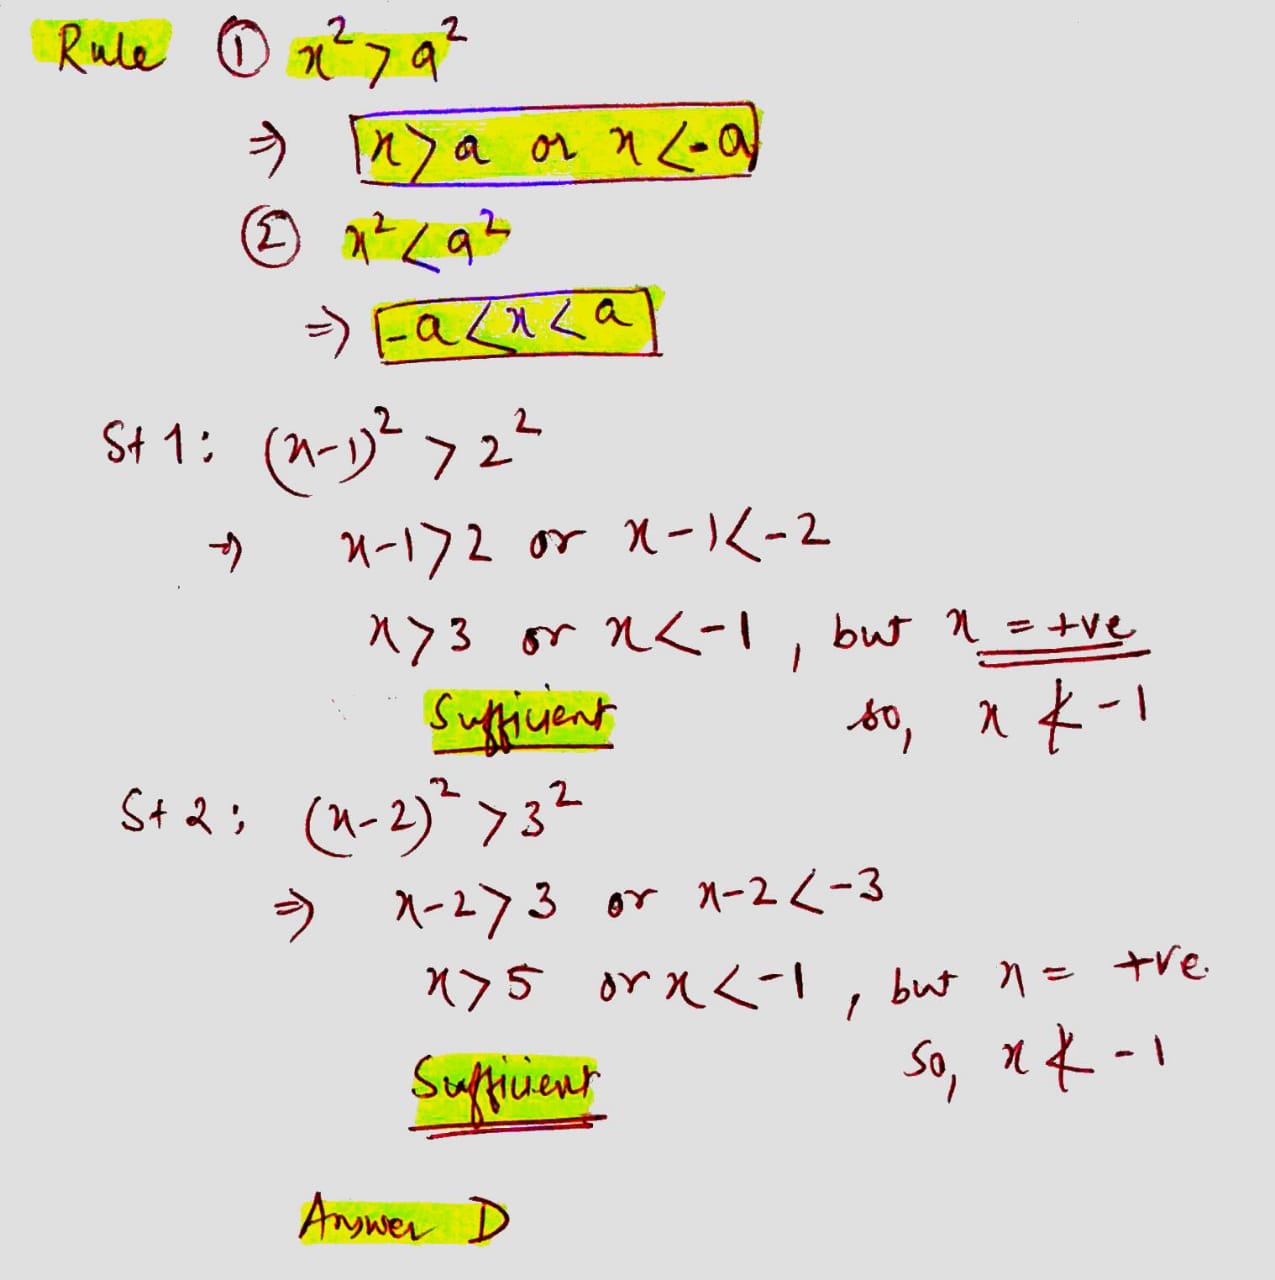 Rule ① x² > a²
⇒ x > a or x < -a
② x² < a²
⇒ -a < x < a
St 1: (x-1)² > 2²
⇒ x-1 > 2 or x-1 < -2
x > 3 or x < -1, but x = +ve
Sufficient so, x ≮ -1
St 2; (x-2)² > 3²
⇒ x-2 > 3 or x-2 < -3
x > 5 or x < -1, but x = +ve.
so, x ≮ -1
Sufficient
Answer D